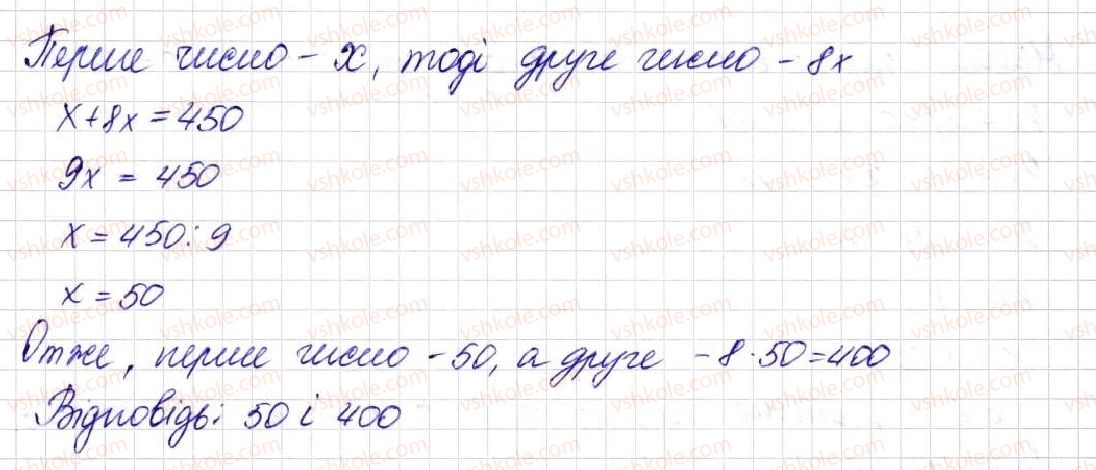 Перше число - x, тоді друге число - 8x
x+8x=450
9x = 450
x=450:9
x=50
Отже, перше число - 50, а друге - 8·50=400
Відповідь: 50 і 400